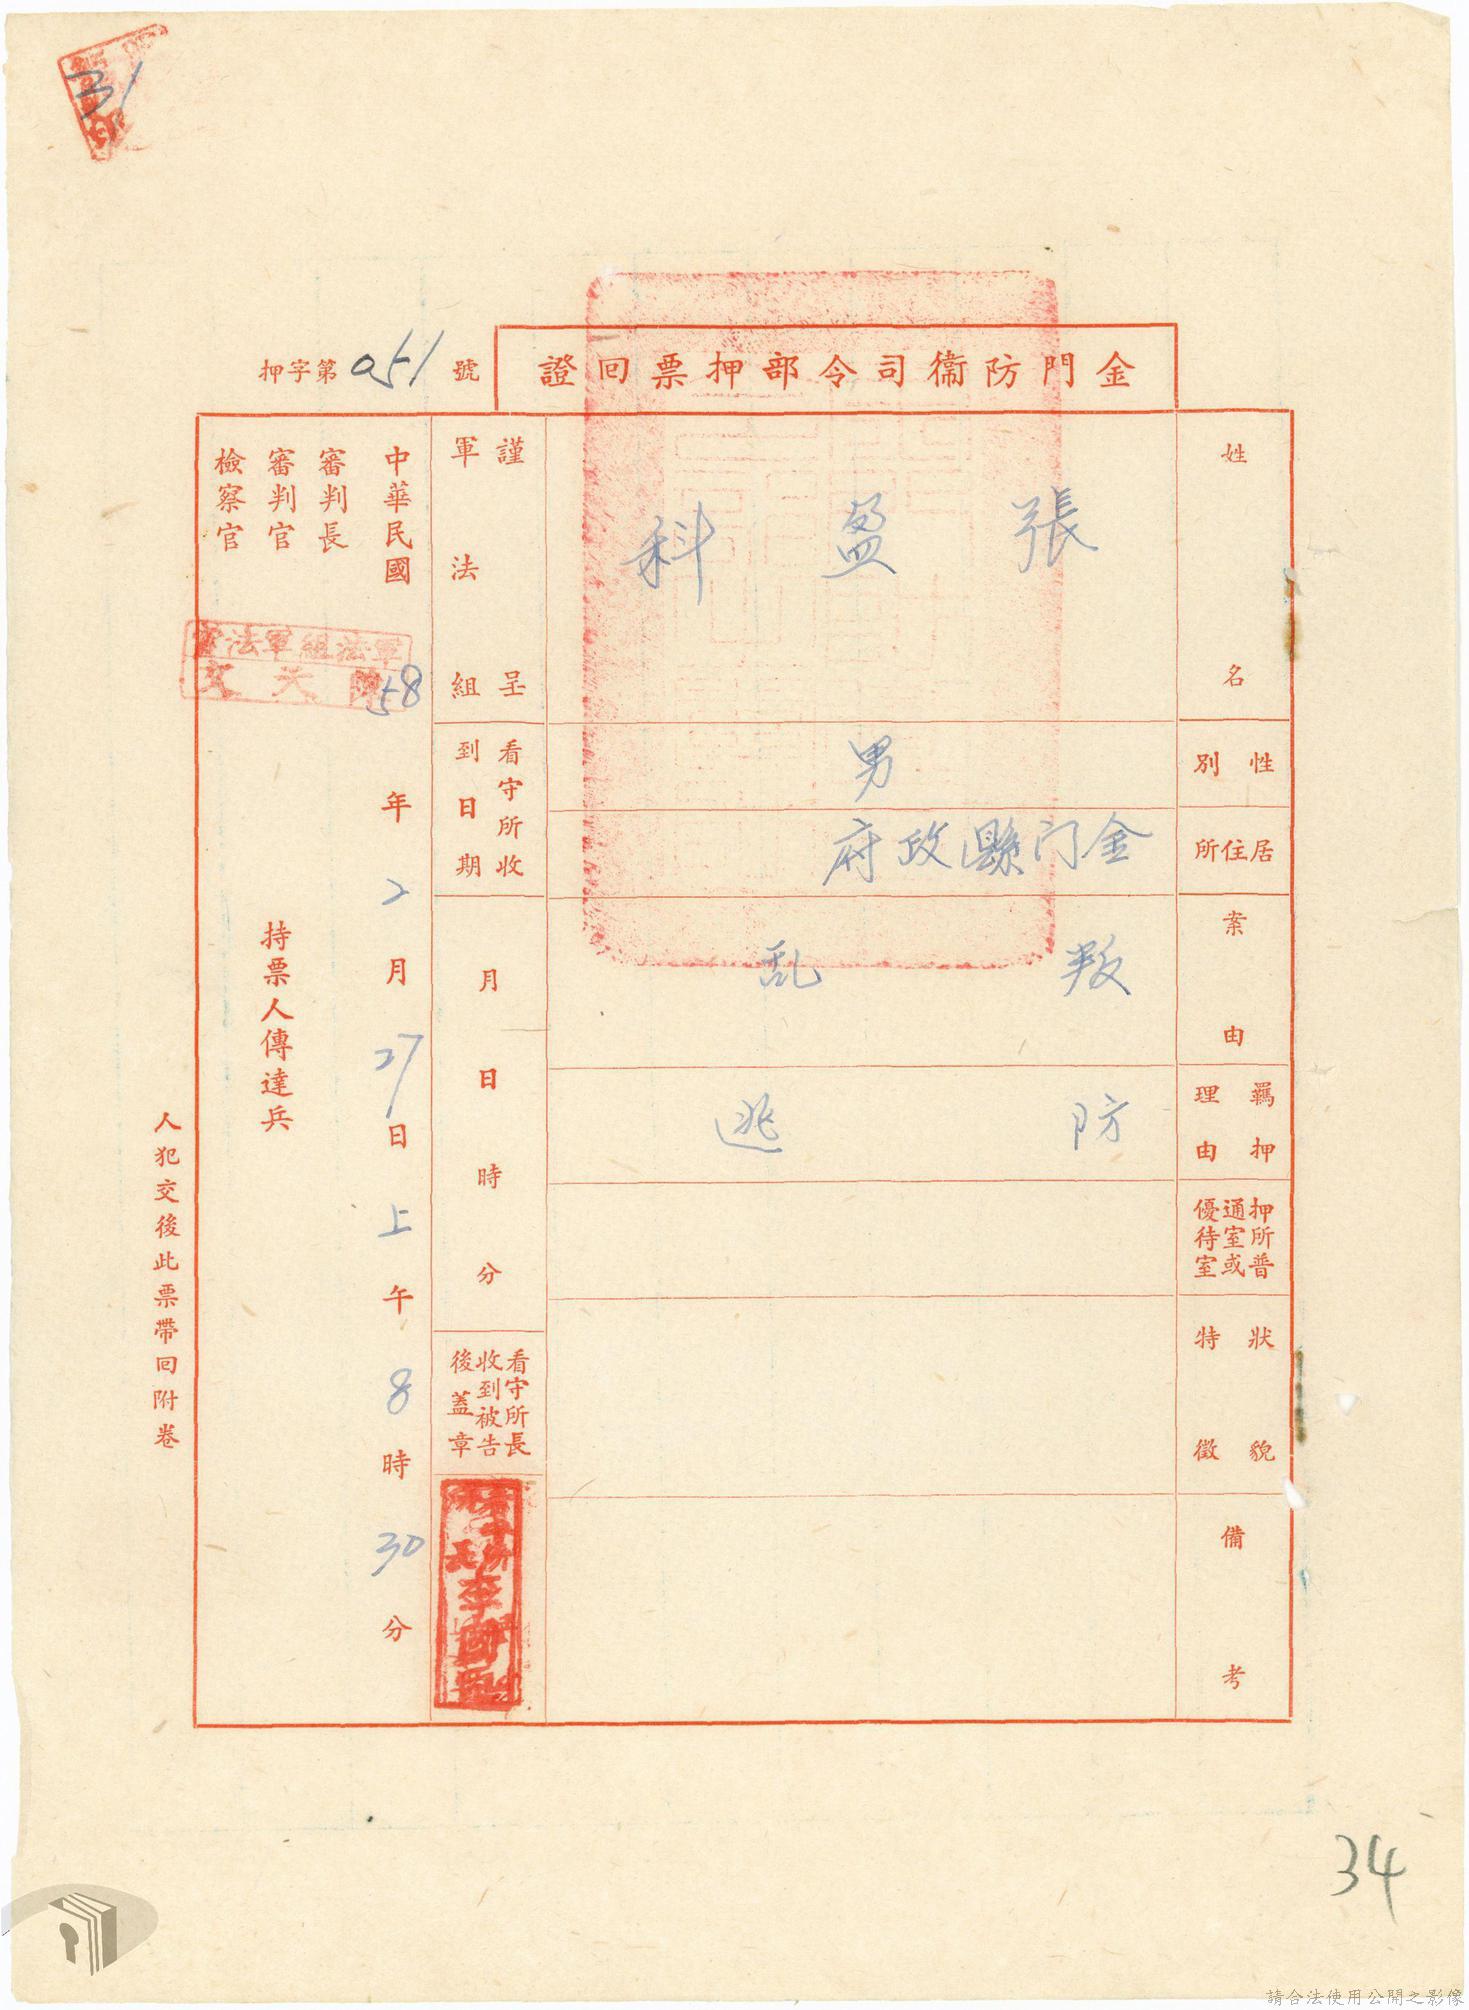 31
金門防衞司令部押票回證
押字第051號
姓名
張盈科
性別
男
居住所
金门縣政府
案由
叛乱
羈押理由
防逃
押所普通室或優待室
狀貌特徵
備考
謹呈
軍法組
看守所收到日期
月日時分
看守所長收到被告後蓋章
看守所長李國
中華民國58年2月27日上午8時30分
審判長
審判官
檢察官
軍法組軍法官
天文
持票人傳達兵
人犯交後此票帶回附卷
34
請合法使用公開之影像